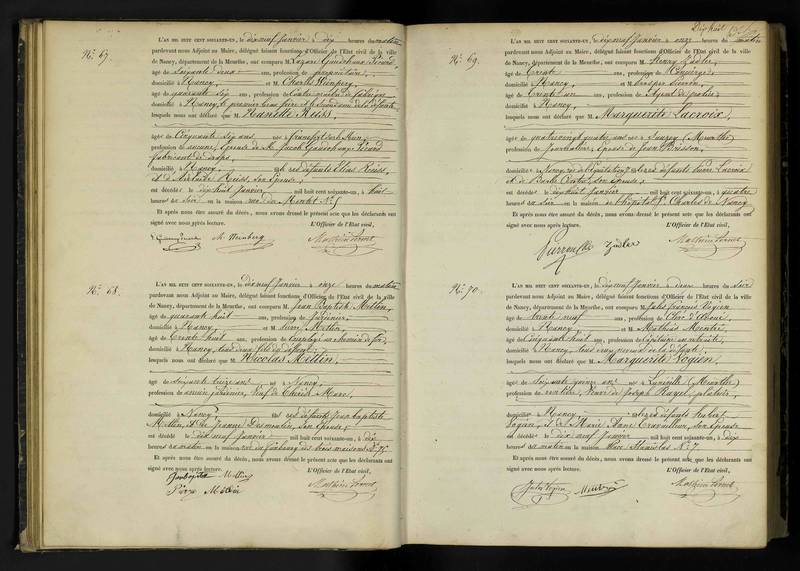 N.° 67.
L'AN MIL HUIT CENT SOIXANTE-UN, le dix neuf janvier à dix heures du matin
pardevant nous Adjoint au Maire, délégué faisant fonctions d'Officier de l'Etat civil de la ville
de Nancy, département de la Meurthe, ont comparu M. Lazare
âgé de soixante deux ans, profession de propriétaire,
domicilié à Nancy, et M. Charles
âgé de quarante six ans, profession de
domicilié à Nancy, le premier beau frère et le second ami de la défunte
lesquels nous ont déclaré que M. Nanette Reiss,
âgée de Cinquante six ans née à Francfort sur le Mein,
profession d'aucune, épouse de M. Jacob Picard
fabricant de draps,
domiciliée à Nancy, des défunts Elias Reiss,
et d' Reiss, son épouse,
est décédée le dix huit janvier, mil huit cent soixante-un, à huit
heures du soir en la maison rue du Montet N.° 5
Et après nous être assuré du décès, nous avons dressé le présent acte que les déclarants ont
signé avec nous après lecture. L'Officier de l'Etat civil,
N.° 68.
L'AN MIL HUIT CENT SOIXANTE-UN, le dix neuf janvier à onze heures du matin
pardevant nous Adjoint au Maire, délégué faisant fonctions d'Officier de l'Etat civil de la ville
de Nancy, département de la Meurthe, ont comparu M. Jean Baptiste Mettin,
âgé de quarante huit ans, profession de jardinier,
domicilié à Nancy, et M. Pierre Mettin,
âgé de trente huit ans, profession de employé au chemin de fer,
domicilié à Nancy, tous deux fils du défunt,
lesquels nous ont déclaré que M. Nicolas Mettin,
âgé de soixante treize ans né à Nancy,
profession de ancien jardinier, veuf de Thérèse Marc,
domicilié à Nancy, des défunts Jean baptiste
Mettin, et de Jeanne Desmoulin, son épouse,
est décédé le dix neuf janvier mil huit cent soixante-un, à dix
heures du matin en la maison rue du faubourg des trois maisons N.° 75
Et après nous être assuré du décès, nous avons dressé le présent acte que les déclarants ont
signé avec nous après lecture. L'Officier de l'Etat civil,
Mettin
Pierre Mettin
Dix huit
N.° 69.
L'AN MIL HUIT CENT SOIXANTE-UN, le dix neuf janvier à onze heures du matin
pardevant nous Adjoint au Maire, délégué faisant fonctions d'Officier de l'Etat civil de la ville
de Nancy, département de la Meurthe, ont comparu M. Henry Zédler,
âgé de trente ans, profession de Concierge,
domicilié à Nancy, et M.
âgé de trente un ans, profession de Agent de police,
domicilié à Nancy,
lesquels nous ont déclaré que M. Marguerite Lacroix,
âgée de quatre vingt quatre ans née à (Meurthe)
profession de journalière, épouse de Jean Brisson,
domiciliée à Nancy, rue de l'équitation, des défunts Pierre Lacroix
et de son épouse,
est décédée le dix huit janvier mil huit cent soixante-un, à quatre
heures du soir en la maison de l'hôpital S.t Charles de Nancy
Et après nous être assuré du décès, nous avons dressé le présent acte que les déclarants ont
signé avec nous après lecture. L'Officier de l'Etat civil,
Zédler
N.° 70.
L'AN MIL HUIT CENT SOIXANTE-UN, le dix neuf janvier à deux heures du soir
pardevant nous Adjoint au Maire, délégué faisant fonctions d'Officier de l'Etat civil de la ville
de Nancy, département de la Meurthe, ont comparu M. Jules François Voquin
âgé de trente neuf ans, profession de Clerc d'avoué,
domicilié à Nancy, et M. Mathias
âgé de cinquante huit ans, profession de capitaine en retraite,
domicilié à Nancy, tous deux neveux de la défunte,
lesquels nous ont déclaré que M. Marguerite Voquin,
âgée de soixante quinze ans née à Lunéville (Meurthe)
profession de rentière, veuve de Joseph plâtrier,
domiciliée à Nancy, des défunts hubert
Voquin, et de Marie Anne son épouse
est décédée le dix neuf janvier mil huit cent soixante-un, à dix
heures du matin en la maison Place Stanislas N.° 7
Et après nous être assuré du décès, nous avons dressé le présent acte que les déclarants ont
signé avec nous après lecture. L'Officier de l'Etat civil,
Jules Voquin